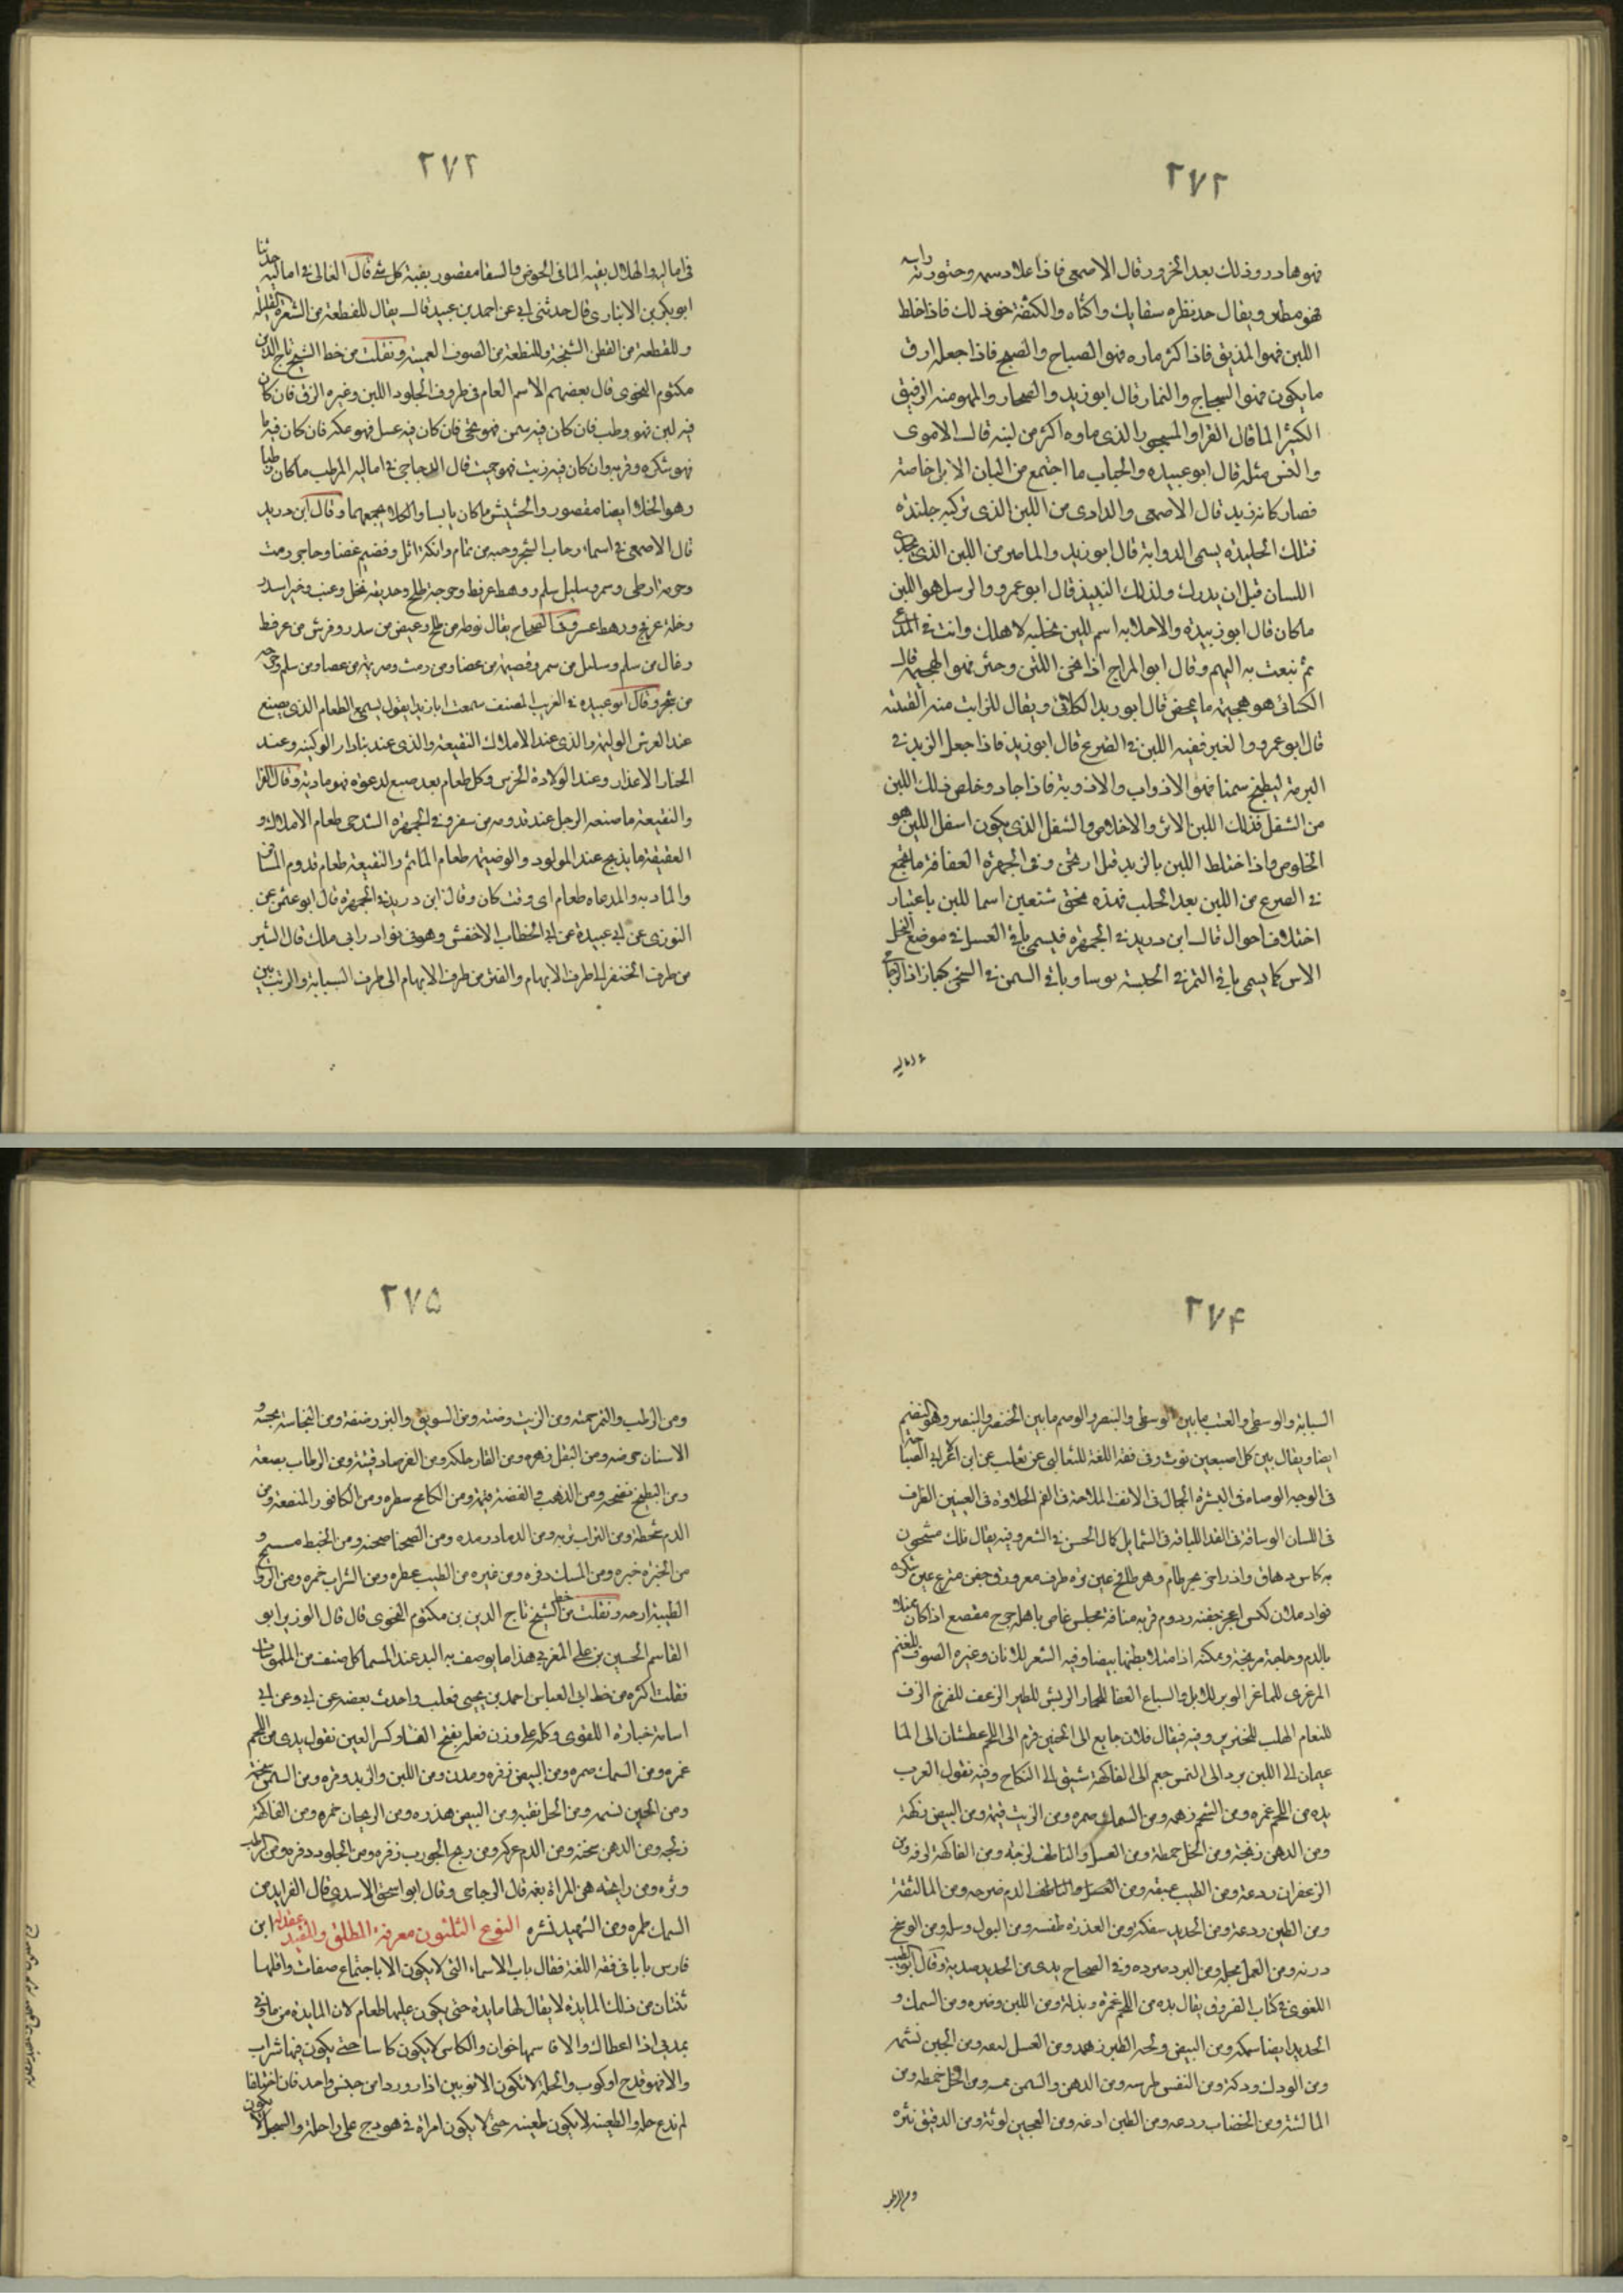 ٢٧٢
فهو هادر وذلك بعد الخزور قال الاصمعى فاذا علا دسمه وخثورته رابه
فهو مطثر ويقال خذ نظره سقايك واكثاه والكثعة نحو ذلك فاذا خلط
اللبن فهو المذيق فاذا كثر ماره فهو الضياح والضيح فاذا جعله ارق
ما يكون فهو السجاج والثمار قال ابو زيد والضحار والمهو منه الرقيق
الكثير الما قال الفرا والمسجور الذى ماوه اكثر من لبنه قال الاموى
والنس مثله قال ابو عبيده والجباب ما اجتمع من البان الابل خاصة
فصار كانه زبد قال الاصمعى والداوى من اللبن الذى تركبه جليدة
فتلك الجليده يسمى الدواية قال ابو زيد والماضر من اللبن الذى يحذى
اللسان قبل ان يدرك ولذلك النبيذ قال ابو عمرو والرسل هو اللبن
ما كان قال ابو زبيده والاحلابه اسم للبن تحلبه لاهلك وانت فى المرعى
ثم تبعث به اليهم وقال ابو الجراح اذا ثخن اللبن وخثر فهو الهجيمة قال
الكنانى هو هجيمة ما لم يمخض قال ابو زيد الكلابى ويقال للرايب منه الغبيبة
قال ابو عمرو والغبر فعيه اللبن فى الضرع قال ابو زيد فاذا جعل الزبد فى
البرمة ليطبخ سمنا فهو الاذواب والاذوبة فاذا جاد وخلص ذلك اللبن
من الثفل فذلك اللبن الاثر والاخلاص والثفل الذى يكون اسفل اللبن هو
الخلوص واذا اختلط اللبن بالزبد قيل ارتجن وفى الجمهرة العفافة ما يجمع
فى الضرع من اللبن بعد الحلب فهذه نحو تسعين اسما للبن باعتبار
اختلاف احوال قال ابن دريد فى الجمهرة فيسمى باقى العسل فى موضع النحل
الاس كما يسمى باقى التمر فى الجلسة قوسا وباقى السمن فى النحى كعبا زاد الزجاجى
فى اماليه
٢٧٢
فى اماليه والهلال بقية الما فى الحوض والسفا مقصور بقية كل شئ قال القالى فى اماليه حدثنا
ابو بكر بن الانبارى قال حدثنى ابى عن احمد بن عبيد قال يقال للقطعة من الشعر الفليلة
وللقطعة من القطن السبيخة وللقطعة من الصوف العميتة ونقلت من خط الشيخ تاج الدين
مكتوم النحوى قال بعضهم الاسم العام فى ظروف الجلود اللبن وغيره الزق فان كان
فيه لبن فهو وطب فان كان فيه سمن فهو نحى فان كان فيه عسل فهو عكة فان كان فيه ما
فهو شكوه وقربه وان كان فيه زيت فهو حميت قال الزجاجى فى اماليه الرطب ما كان رطبا
وهو الخلا ايضا مقصور والحشيش ما كان يابسا والكلا يجمعهما وقال ابن دريد
قال الاصمعى فى اسماء رحاب الشجر وحبه من ثمام وانكة اثل وقضيم غضا وحاجر رمث
وحومة ارطى وسمر وسليل سلم ووهط عرفط وحوجة طلح وحديقة نخل وعنب وخبر اسدر
وخلة عرفج ووهط عشر وفى الصحاح يقال نوطة من طلح وعيص من سدر وفرش من عرفط
وغال من سلم وسليل من سمر وقصيمة من غضا ومن رمث وصريمة من غضا ومن سلم وحرجة
من شجر وقال ابو عبيده فى الغريب المصنف سمعت ابا زيد يقول يسمى الطعام الذى يصنع
عند العرس الوليمة والذى عند الاملاك النقيعة والذى عند بنا دار الوكيره وعند
الختان الاعذار وعند الولادة الخرس وكل طعام بعد صنع لدعوه فهو مادبة وقال الفرا
والنقيعة ما صنعه الرجل عند قدومه من سفر وفى الجمهره الشدحى طعام الاملاك و
العقيقة ما يذبح عند المولود والوضيمة طعام الماتم والنقيعة طعام قدوم المسافر
والمادبه والمدعاه طعام اى وقت كان وقال ابن دريد فى الجمهرة قال ابو عثمن عن
التوزى عن ابى عبيدة عن ابى الخطاب الاخفش وهو فى نوادر ابى ملك قال الشبر
من طرف الخنصر الى طرف الابهام والفتر من طرف الابهام الى طرف السبابة والرتب بين
٢٧۴
السبابة والوسطى والعتب ما بين الوسطى والبنصر والوصم ما بين الخنصر والبنصر وهو البضم
ايضا ويقال بين كل اصبعين فوت وفى فقه اللغة للثعالبى عن ثعلب عن ابن الاعرابى الصباحة
فى الوجه الوضاءة فى البشرة الجمال فى الانف الملاحة فى الفم الحلاوة فى العينين الظرف
فى اللسان الرشاقة فى القد اللباقة فى الشمايل كمال الحسن فى الشعر وفيه يقال فلك مشحون
به كاس دهاق واد زاخر بحر طام ونهر طافح عين ثره طرف مغرورق جفن مترع عين شكره
فواد ملان كيس اعجر جفنه رذوم قربه متاقة مجلس غاص باهله جرح مقصع اذا كان ممتلا
بالدم وحلجة مرتجة ومكنه اذا امتلا بطنها بيضا وفيه الشعر للانسان وغيره الصوف للغنم
المرعزى للماعز الوبر للابل والسباع العفا للحمار الريش للطير الزغب للفرخ الزف
للنعام الهلب للخنزير وفيه فيقال فلان جايع الى الخبز قرم الى اللحم عطشان الى الما
عيمان الى اللبن برد الى التمر جعم الى الفاكهة شبق الى النكاح وفيه تقول العرب
يده من اللحم غمره ومن الشحم زهمه ومن السمك صمره ومن الزيت قنمة ومن البيض زهكة
ومن الدهن زنخة ومن الخل خمطة ومن العسل والناطف لزجة ومن الفاكهة لزقه ومن
الزعفران ردعة ومن الطيب عبقه ومن الدم ضرجه ومن الما لثقة
ومن الطين ردغة ومن الحديد سهكه ومن العذرة طفسة ومن البول وسله ومن الوسخ
درنه ومن العمل مجله ومن البرد صرده وفى الصحاح يدى من الحديد صديه وقال ابو الطيب
اللغوى فى كتاب الفروق يقال يده من اللحم غمرة وبذلة ومن اللبن وضره ومن السمك و
الحديد ايضا سهكه ومن البيض ولحم الطير زهمة ومن العسل لبعه ومن الجبن نشمه
ومن الودك ودكة ومن النفس طرسه ومن الدهن والسمن نمسه ومن الخل خمطه ومن
الما لثقة ومن الخضاب ردعه ومن الطين ردغه ومن العجين لوثة ومن الدقيق نثره
ومن الرطب
٢٧۵
ومن الرطب والتمر حمته ومن الزيت وضته ومن السويق والبزر رضفة ومن النجاسة نجسه و
الاسنان حرضه ومن البقل زهره ومن القار حلكه ومن الفرصاد قنئة ومن الرطاب بصعة
ومن البطيخ نضحه ومن الذهب والفضة قثمة ومن الكامخ سطره ومن الكافور المنصعة ومن
الدم شحطة ومن التراب تربه ومن الرماد رمده ومن الصحنا صحنه ومن الخبط مسسح و
من الخبز خبزه ومن المسك دفره ومن غيره من الطيب عطره ومن الشراب خمره ومن الروايح
الطيبة ارجه ونقلت من خط الشيخ تاج الدين بن مكتوم النحوى قال قال الوزير ابو
القاسم الحسين بن على المغربى هذا ما يوصف به اليد عند المسها كل صنف من الملموسات
نقلت اكثره من خط ابى العباس احمد بن يحيى ثعلب واحدث بعضه عن ابى وعن ابى
اسامة جناده اللغوى وكله على وزن فعلة بفتح الفا وكسر العين تقول يدى من اللحم
غمره ومن السمك صمره ومن البيض زفره ومذن ومن اللبن والزبد وضره ومن السمن سنخة
ومن الجبن نسمه ومن الخل نقبه ومن البيض هذره ومن الريحان خمره ومن الفاكهة
زلجه ومن الدهن سخنه ومن الدم عركه ومن ريح الجورب زفره ومن الجلود دفره ومن الرطب
وثره ومن رايحة هن المراة بغمه قال الزجاجى وقال ابو اسحق الاسدى قال الفرا يد من
السمك طمره ومن الشهد نشره النوع الثلثون معرفة المطلق والمقيد عقد له ابن
فارس بابا فى فقه اللغة فقال باب الاسماء التى لا يكون الا باجتماع صفات واقلها
ثنتان من ذلك المايدة لا يقال لها مايدة حتى يكون عليها طعام لان المايدة من مادنى
يميدنى اذا اعطاك والا فاسمها خوان والكاس لا يكون كاسا حتى يكون فيها شراب
والا فهو قدح او كوب والحلة لا تكون الا ثوبين ازار وردا من جنس واحد فان اختلفا
لم تدع حلة والظعينه لا يكون ظعينه حتى لا يكون امراة فى هودج على راحلة والسجل لا يكون